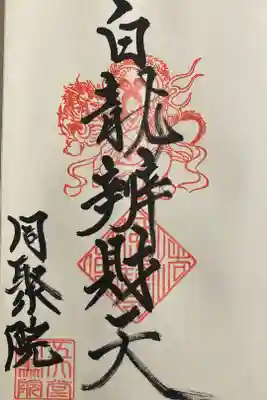 白龍辨財天
同聚院